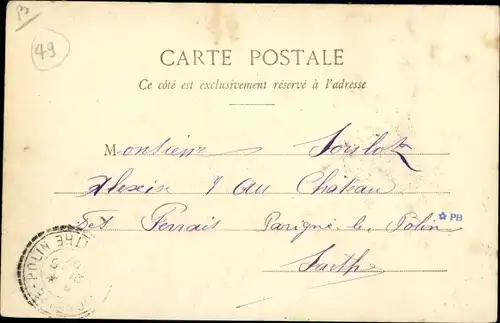 49
CARTE POSTALE
Ce côté est exclusivement réservé à l'adresse
Monsieur Soulot
Alexis au Château
des Perrais Parigné le Polin
Sarthe
PB
POLIN